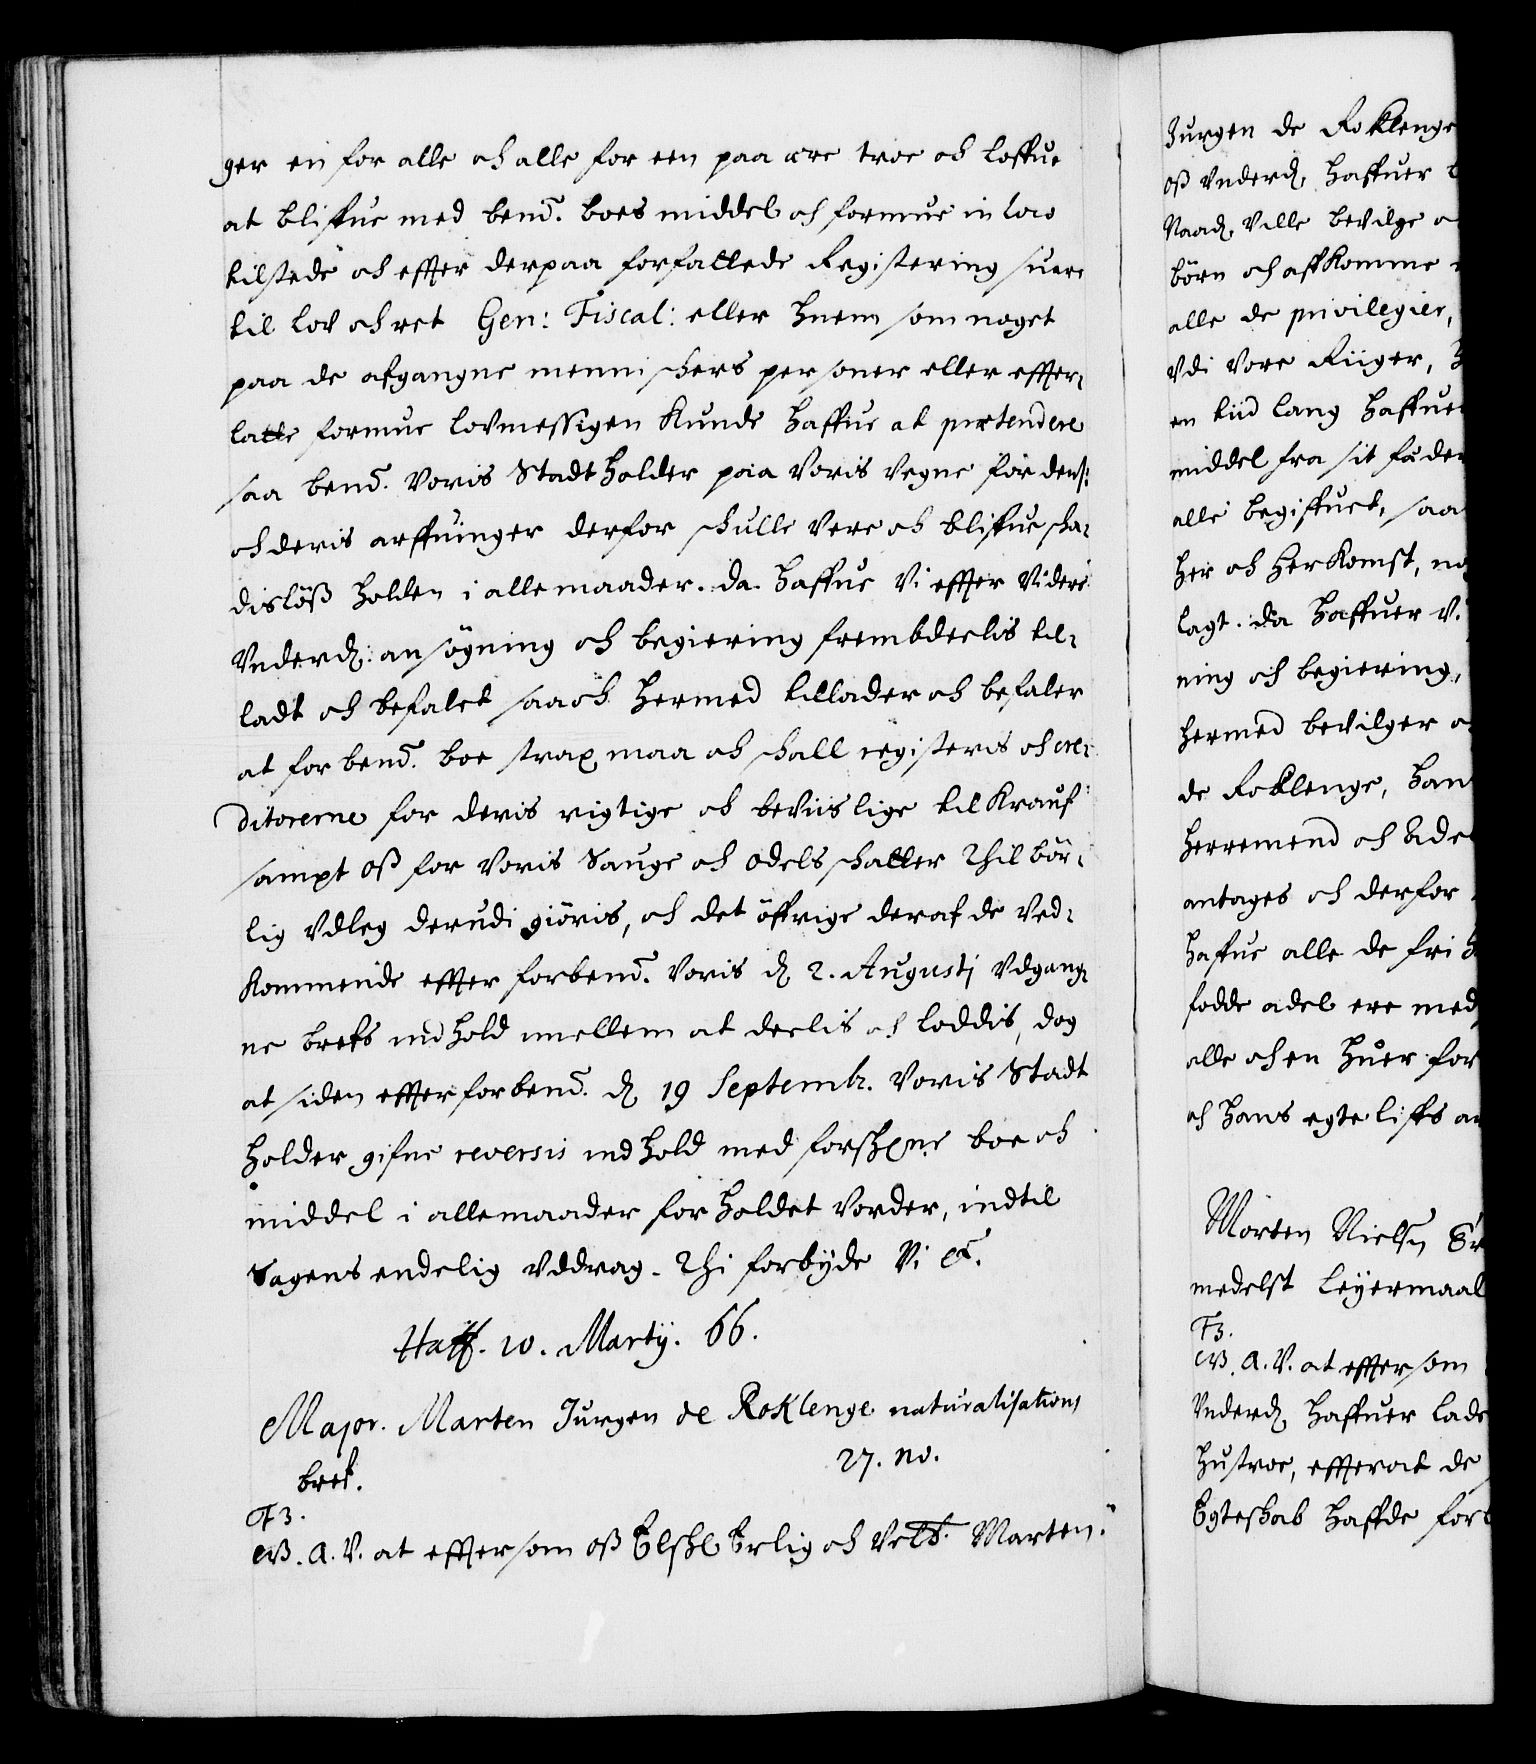 ger en for alle och alle for een paa ære troe och loffue
at bliffue med bend. boes middel och formue in loco
tilstede och effter derpaa forfattede Registering suare
til lov och ret Gen: Fiscal: eller huem som noget
paa de afgangne menniskers personer eller effter-
latte formue lovmessigen kunde haffue at prætendere
saa bend. Voris Stadtholder paa Voris vegne for dens:
och deris arffuinger derfor schulle vere och bliffue scha-
disløß holden i alle maader. da haffue Vi effter videre
Underd: ansøgning och begiering frembdeelis til-
ladt och befalet saa och hermed tillader och befaler
at forbend. boe strax maa och schall registeris och cre-
ditorerne for deris rigtige och beviislige til krauf
sampt oß for Voris Sauge och odels schatter Thilbør-
lig Udleg derudi giøris, och det øffrige deraf de Ved-
kommende effter forbend. Voris d. 2. Augusti Udgang-
ne brefs indhold imellem at deelis och loddis, dog
at siden effter forbend. d. 19 Septembr. Voris Stadt
holder gifne reversis indhold med forschrne boe och
middel i alle maader forholdet vorder, indtil
Sagens endelig Uddrag. Thi forbyde Vi etc.
Haff. 10. Martij. 66.
Major. Marten Jurgen de Roklenge naturalisations
bref. 27. no.
F3.
G.A.V. at effter som oß Elschel Erlig och Velb. Marten
Jurgen de Roklenge
oß Underd. haffuer
Naad. Ville bevilge
børn och affkomme
alle de privilegier,
Udi Vore Riiger,
en tiid lang haffuer
middel fra sit fæder
alle begiffuet, saa
her och herkomst,
lagt. da haffuer V.
ning och begiering,
hermed bevilger
de Roklenge, han
herremend och Adel
antages och derfor
haffue alle de fri
fødde adel ere med
alle och en huer for
och hans egte liffs
Morten Nielsen
medelst Leyermaal
F3.
G.A.V. at effter som
Underd. haffuer lade
hustroe, effter at de
Egteskab haffde for